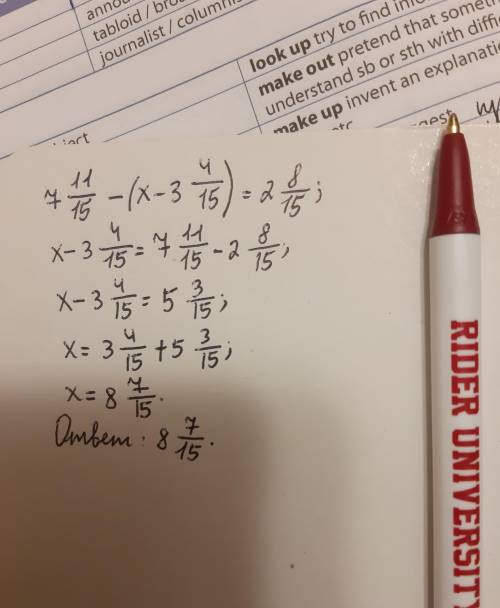 annou
tabloid / bro
journalist / columnis
look up try to find info
make out pretend that someth
understand sb or sth with diffi
make up invent an explanatio
etc
ject
gest
7 11/15 - (x - 3 4/15) = 2 8/15;
x - 3 4/15 = 7 11/15 - 2 8/15;
x - 3 4/15 = 5 3/15;
x = 3 4/15 + 5 3/15;
x = 8 7/15.
Ответ: 8 7/15.
RIDER UNIVERSITY